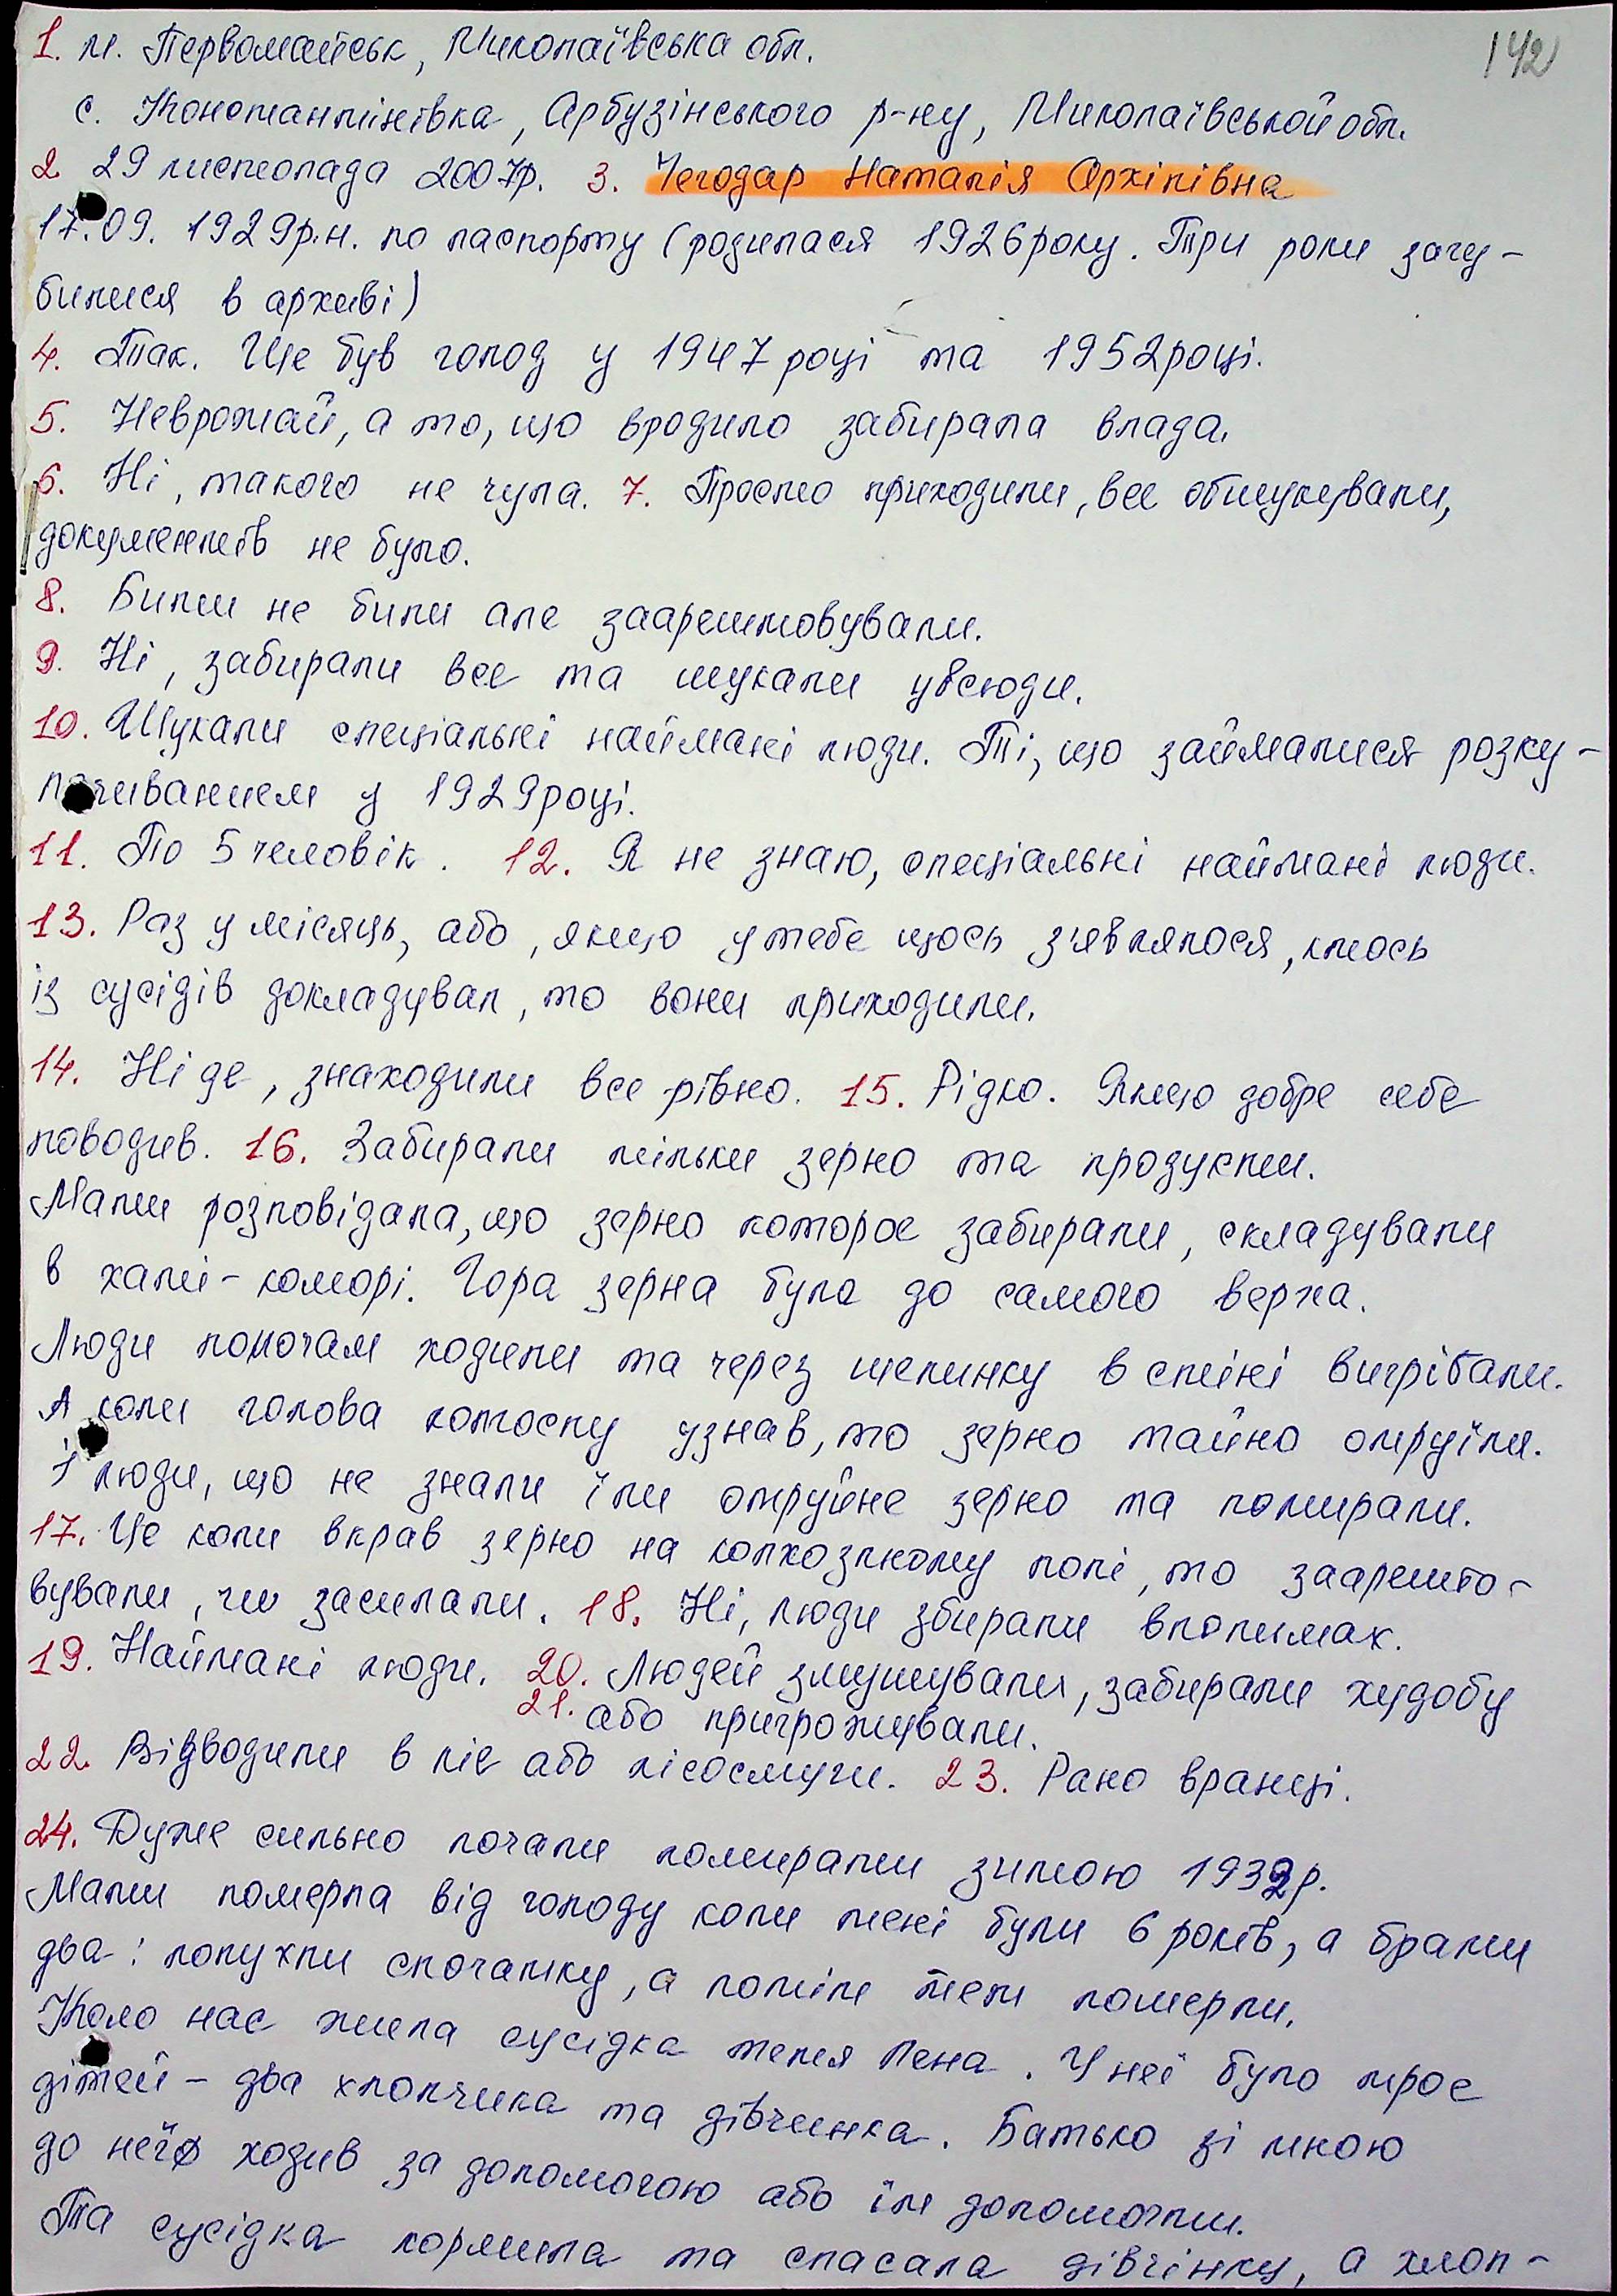 142
1. м. Первомайськ, Миколаївська обл.
с. Константінівка, Арбузінського р-ну, Миколаївськой обл.
2. 29 листопада 2007р. 3. Чегодар Наталія Архіпівна
17.09. 1929р.н. по паспорту (родилася 1926 року. Три роки загу-
билися в архиві)
4. Так. Ще був голод у 1947 році та 1952 році.
5. Неврожай, а то, що вродило забирала влада.
6. Ні, такого не чула. 7. Просто приходили, все обшукували,
документів не було.
8. Бити не били але заарештовували.
9. Ні, забирали все та шукали увсюди.
10. Шукали спеціальні наймані люди. Ті, що займалися розку-
лачиванием у 1929 році.
11. По 5 человік. 12. Я не знаю, спеціальні наймані люди.
13. Раз у місяць, або, якщо у тебе щось з'являлося, хтось
із сусідів докладувал, то вони приходили.
14. Ні де, знаходили все рівно. 15. Рідко. Якщо добре себе
поводив. 16. Забирали тільки зерно та продукти.
Мати розповідала, що зерно которое забирали, складували
в хаті-коморі. Гора зерна була до самого верха.
Люди поночам ходили та через щелинку в стіні вигрібали.
А коли голова колгоспу узнав, то зерно тайно отруїли.
І люди, що не знали їли отруйне зерно та помирали.
17. Це коли вкрав зерно на колхозному полі, то заарешто-
вували, чи засилали. 18. Ні, люди збирали вполимах.
19. Наймані люди. 20. Людей змушували, забирали худобу
21. або пригрожували.
22. Відводили в ліс або лісосмуги. 23. Рано вранці.
24. Дуже сильно почали помирати зимою 1932р.
Мати померла від голоду коли мені були 6 років, а брати
два: попухли спочатку, а потім теж померли.
Коло нас жила сусідка тетя Лена. У неї було троє
дітей - два хлопчика та дівчинка. Батько зі мною
до неї ходив за допомогою або їм допомогти.
Та сусідка кормила та спасала дівчінку, а хлоп-